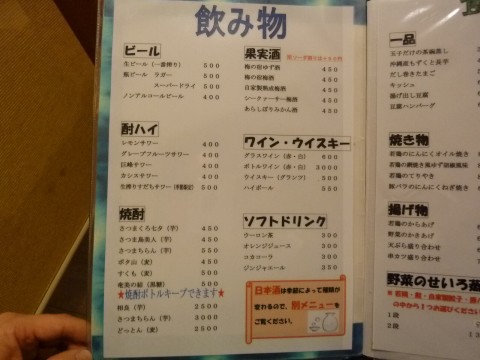 飲み物
ビール
生ビール(一番搾り) 500
瓶ビール ラガー 500
スーパードライ 500
ノンアルコールビール 400
酎ハイ
レモンサワー 400
グレープフルーツサワー 400
巨峰サワー 400
カシスサワー 400
生搾りすだちサワー 500
焼酎
さつまくろ七夕(芋) 450
さつま島美人(芋) 450
さつまちらん(芋) 500
すくも(麦) 500
奄美の結(黒糖) 500
★焼酎ボトルキープできます★
相良(芋) 2500
さつまちらん(芋) 3000
どっとん(麦) 2500
果実酒
梅の宿ゆず酒 450
梅の宿梅酒 450
自家製熟成梅酒 450
シークァーサー梅酒 450
あらしぼりみかん酒 450
ワイン・ウイスキー
グラスワイン(赤・白) 400
ボトルワイン(赤・白) 3000
ウイスキー(グランツ) 500
ハイボール 500
ソフトドリンク
ウーロン茶 300
オレンジジュース 300
コカコーラ 300
ジンジャエール 300
日本酒は季節によって種類が
変わるので、別メニューを
ご覧ください。
一品
玉子だけの茶碗蒸し
沖縄産もずくと長芋
だし巻きたまご
キッシュ
揚げ出し豆腐
豆腐ハンバーグ
焼き物
若鶏のにんにくオイル焼き
若鶏のてりやき
豚バラのにんにくねぎ焼き
揚げ物
若鶏のからあげ
野菜のかきあげ
天ぷら盛り合わせ
串カツ盛り合わせ
野菜のせいろ蒸
の中から1つお選びください
1段
2段